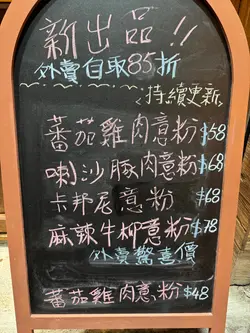 新出品!!
外賣自取85折
持續更新
蕃茄雞肉意粉 $58
喇沙豚肉意粉 $68
卡邦尼意粉 $68
麻辣牛柳意粉 $78
外賣驚喜價
蕃茄雞肉意粉 $48